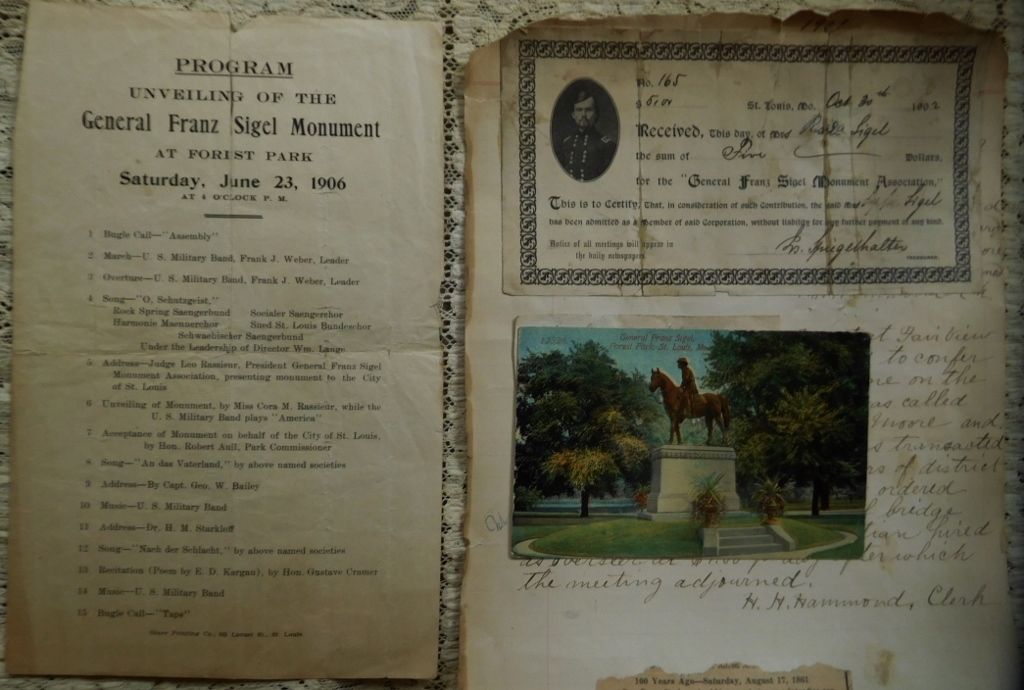 PROGRAM
UNVEILING OF THE
General Franz Sigel Monument
AT FOREST PARK
Saturday, June 23, 1906
AT 4 O'CLOCK P. M.
1 Bugle Call—"Assembly"
2 March—U. S. Military Band, Frank J. Weber, Leader
3 Overture—U. S. Military Band, Frank J. Weber, Leader
4 Song—"O, Schutzgeist,"
Rock Spring Saengerbund Socialer Saengerchor
Harmonie Maennerchor Sued St. Louis Bundeschor
Schwaebischer Saengerbund
Under the Leadership of Director Wm. Lange
5 Address—Judge Leo Rassieur, President General Franz Sigel
Monument Association, presenting monument to the City
of St. Louis
6 Unveiling of Monument, by Miss Cora M. Rassieur, while the
U. S. Military Band plays "America"
7 Acceptance of Monument on behalf of the City of St. Louis,
by Hon. Robert Aull, Park Commissioner
8 Song—"An das Vaterland," by above named societies
9 Address—By Capt. Geo. W. Bailey
10 Music—U. S. Military Band
11 Address—Dr. H. M. Starkloff
12 Song—"Nach der Schlacht," by above named societies
13 Recitation (Poem by E. D. Kargau), by Hon. Gustave Cramer
14 Music—U. S. Military Band
15 Bugle Call—"Taps"
Printing Co., St. Louis
No. 165
$ 5.00 St. Louis, Mo. Oct 30th 1902
Received, This day, of Mrs Sigel
the sum of Five Dollars,
for the "General Franz Sigel Monument Association,"
This is to Certify, That, in consideration of such Contribution, the said Mrs Sigel
has been admitted as a Member of said Corporation, without liability for any further payment of any kind.
Notice of all meetings will appear in
the daily newspapers.
TREASURER.
General Franz Sigel,
Forest Park, St. Louis, Mo.
at Fair View
to confer
on the
as called
Moore and
transacted
of district
ordered
bridge
hired
as overseer at per day after which
the meeting adjourned.
H. H. Hammond, Clerk
100 Years Ago—Saturday, August 17, 1861